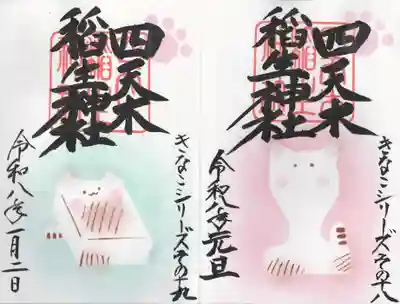 四天木
稲生神社
きなこシリーズその十八
令和八年元旦
四天木
稲生神社
きなこシリーズその十九
令和八年一月二日